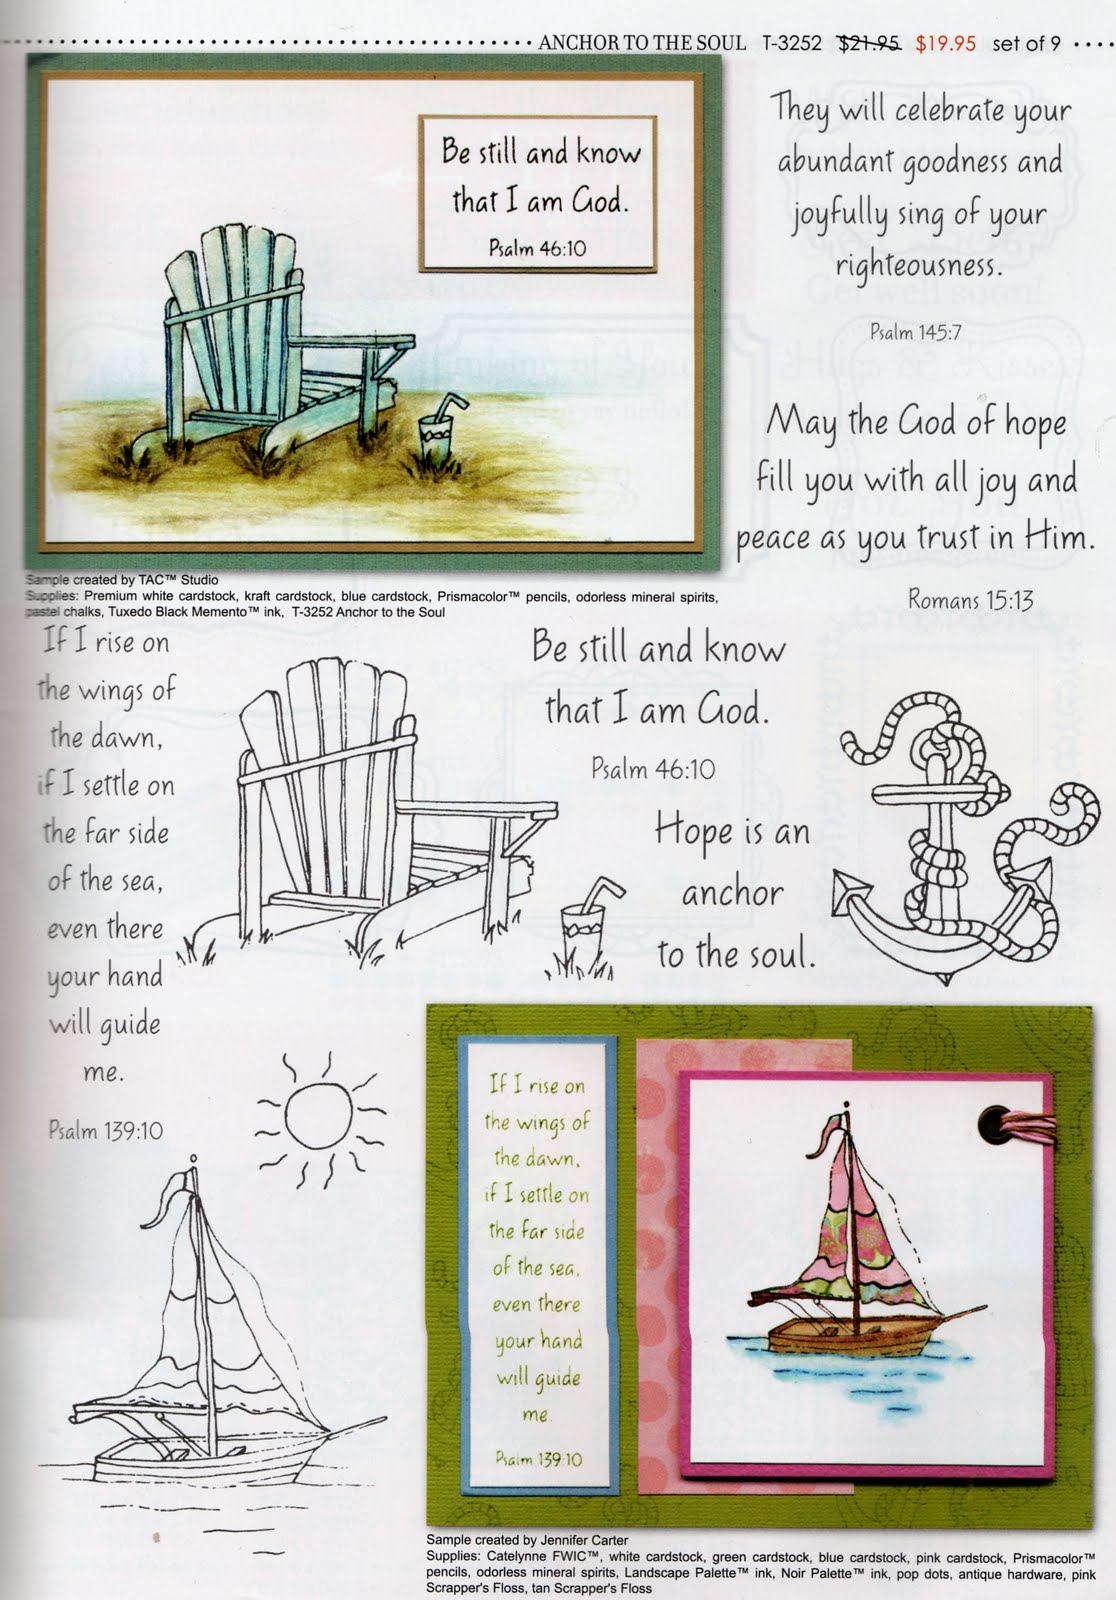 ANCHOR TO THE SOUL T-3252 $21.95 $19.95 set of 9
Be still and know
that I am God.
Psalm 46:10
They will celebrate your
abundant goodness and
joyfully sing of your
righteousness.
Psalm 145:7
May the God of hope
fill you with all joy and
peace as you trust in Him.
Romans 15:13
Sample created by TAC™ Studio
Supplies: Premium white cardstock, kraft cardstock, blue cardstock, Prismacolor™ pencils, odorless mineral spirits,
pastel chalks, Tuxedo Black Memento™ ink, T-3252 Anchor to the Soul
If I rise on
the wings of
the dawn,
if I settle on
the far side
of the sea,
even there
your hand
will guide
me.
Psalm 139:10
Be still and know
that I am God.
Psalm 46:10
Hope is an
anchor
to the soul.
If I rise on
the wings of
the dawn,
if I settle on
the far side
of the sea,
even there
your hand
will guide
me.
Psalm 139:10
Sample created by Jennifer Carter
Supplies: Catelynne FWIC™, white cardstock, green cardstock, blue cardstock, pink cardstock, Prismacolor™
pencils, odorless mineral spirits, Landscape Palette™ ink, Noir Palette™ ink, pop dots, antique hardware, pink
Scrapper's Floss, tan Scrapper's Floss